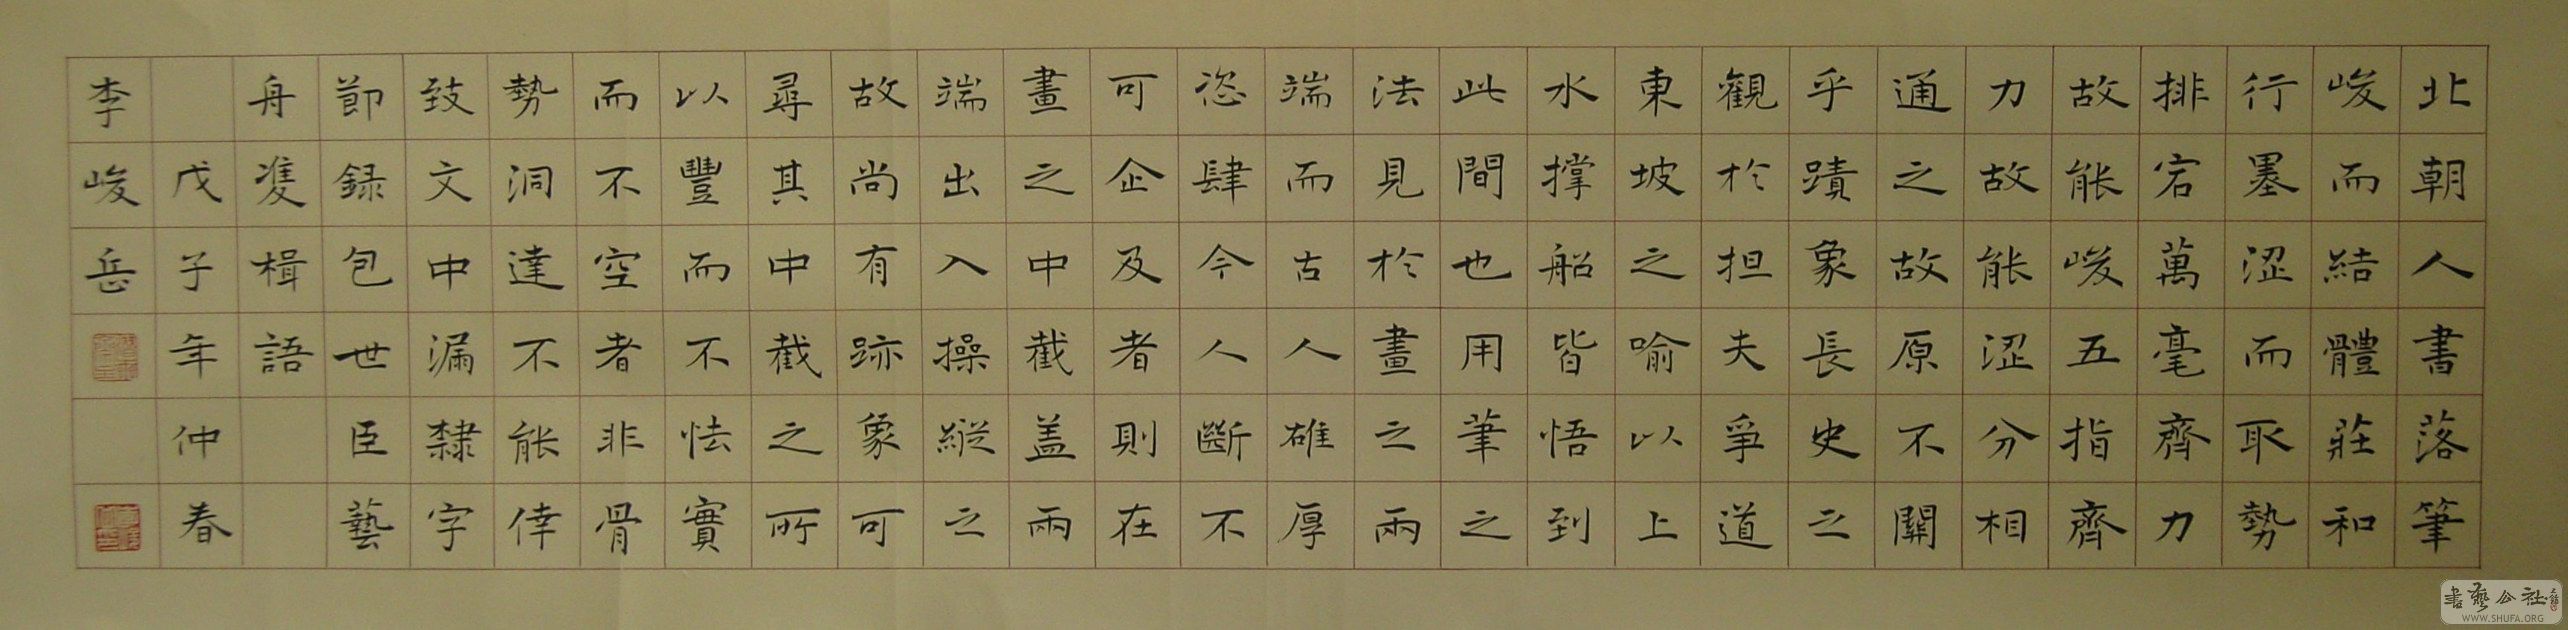 北朝人書落筆
峻而結體莊和
行墨涩而取勢
排宕萬毫齊力
故能峻五指齊
力故能涩分相
通之故原不關
乎蹟象長史之
觀於担夫爭道
東坡之喻以上
水撑船皆悟到
此間也用筆之
法見於畫之兩
端而古人雄厚
恣肆今人斷不
可企及者則在
畫之中截盖兩
端出入操縱之
故尚有跡象可
尋其中截之所
以豐而不怯實
而不空者非骨
勢洞達不能倖
致文中漏隸字
節録包世臣藝
舟雙楫語
戊子年仲春
李峻岳
書藝公社
WWW.SHUFA.ORG